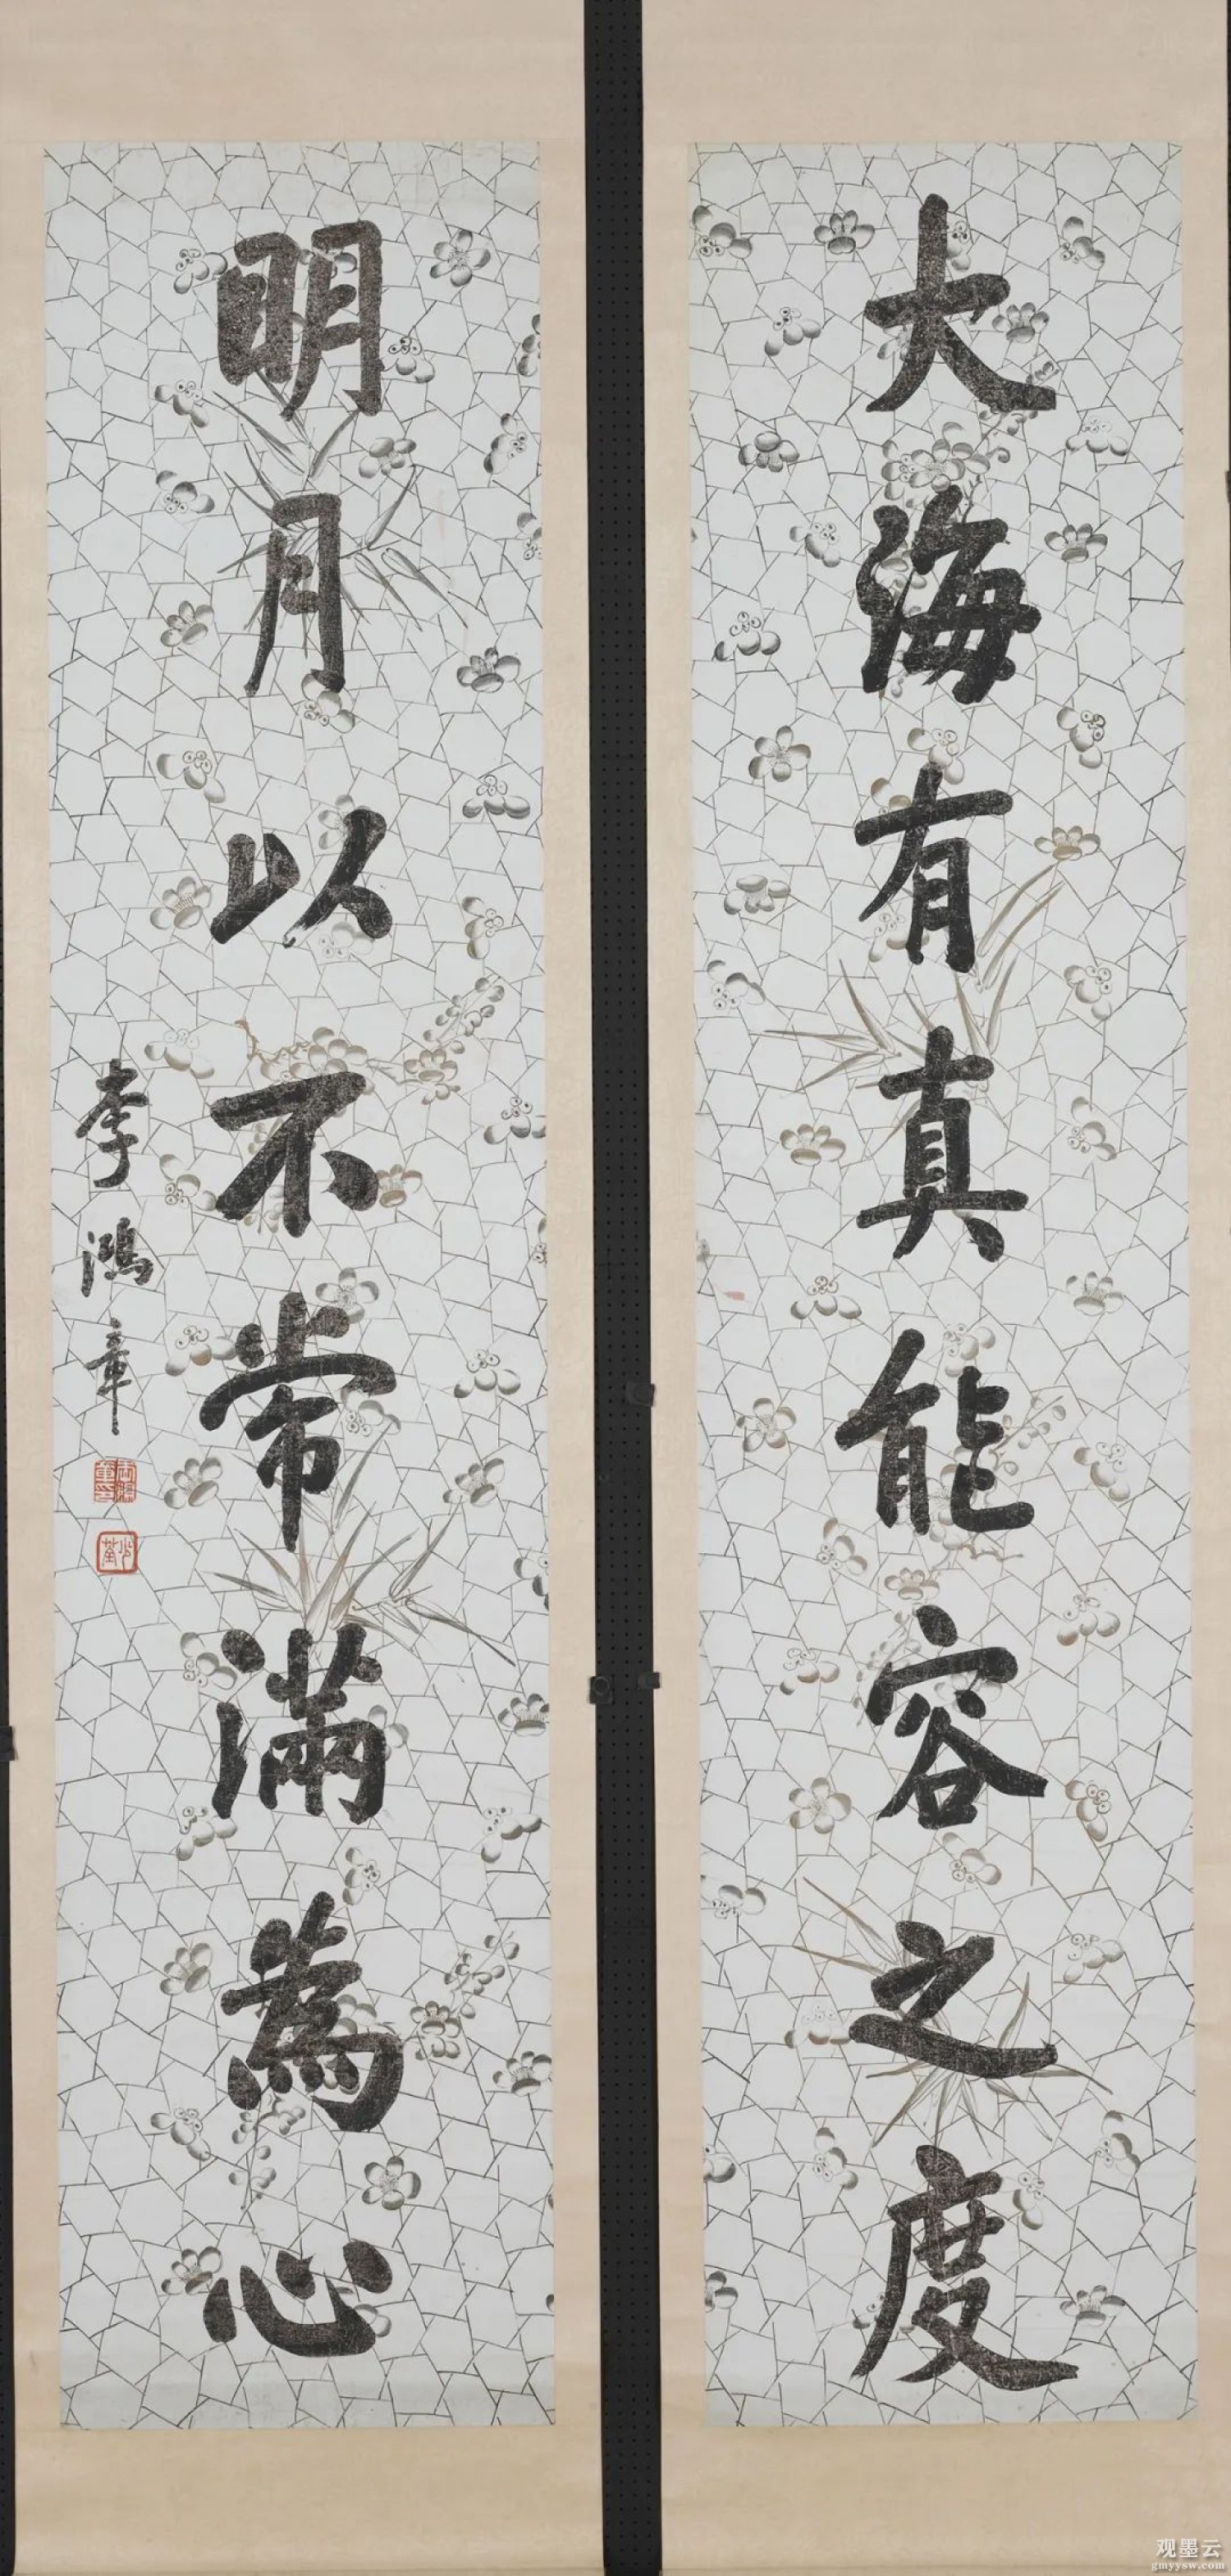 大海有真能容之度
明月以不常滿為心
李鴻章
李鴻章印
少荃
观墨云
gmyysw.com